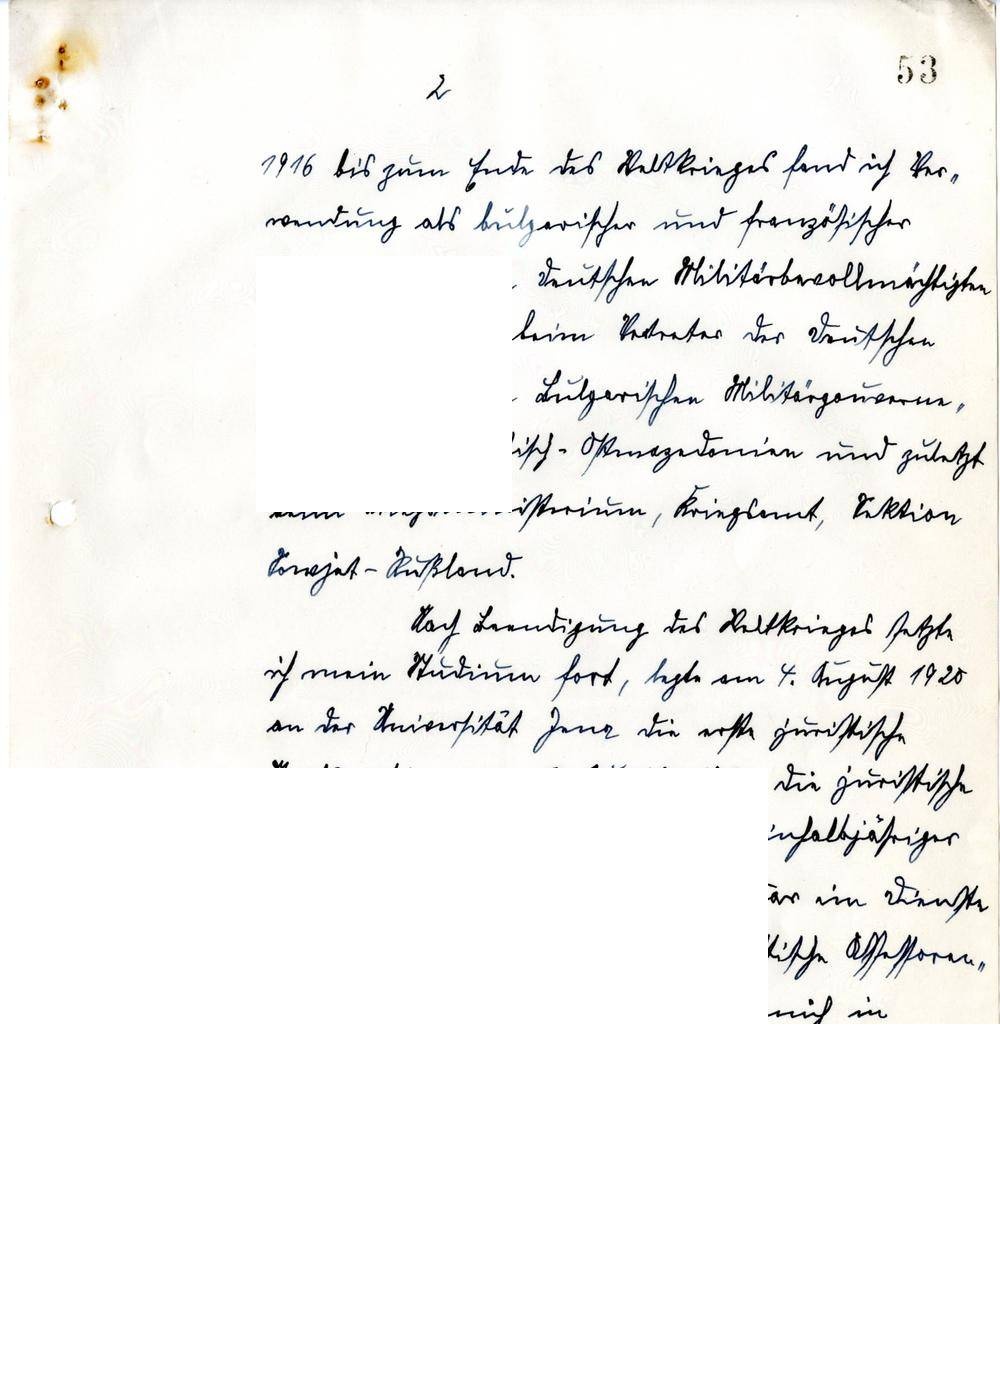 53
2
1916 bis zum Ende des Weltkrieges fand ich Ver„
wendung als bulgarischer und französischer
deutschen Militärbevollmächtigten
beim Vertreter der Deutschen
Bulgarischen Militärgouverne„
isch-Ostmazedonien und zuletzt
isterium, Kriegsamt, Sektion
Sowjet-Rußland.
Nach Beendigung des Weltkrieges setzte
ich mein Studium fort, legte am 4. August 1920
an der Universität Jena die erste juristische
die juristische
inhalbjähriger
ar im Dienste
tische Assessoren„
mich in